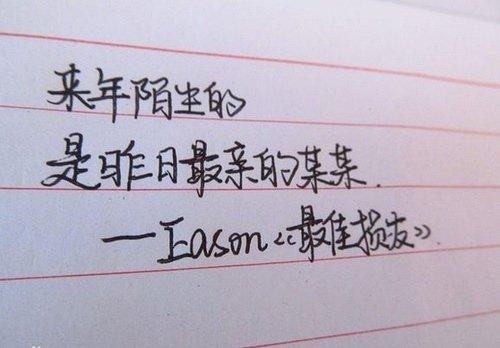 来年陌生的
是昨日最亲的某某.
——Eason《最佳损友》.